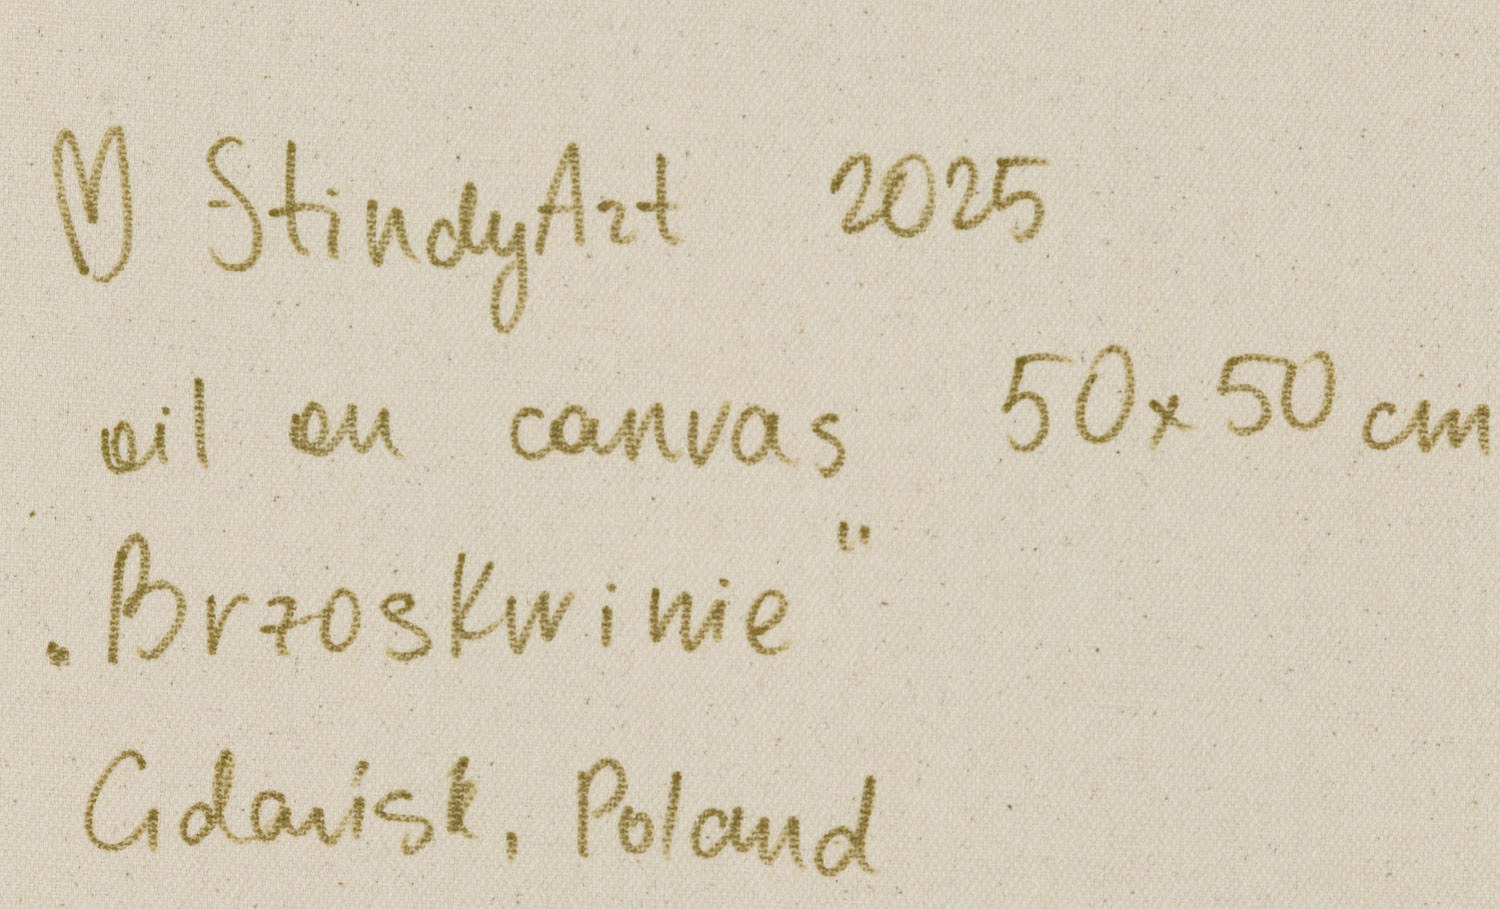 ♡ StindyArt 2025
oil on canvas 50x50 cm
„Brzoskwinie"
Gdańsk, Poland